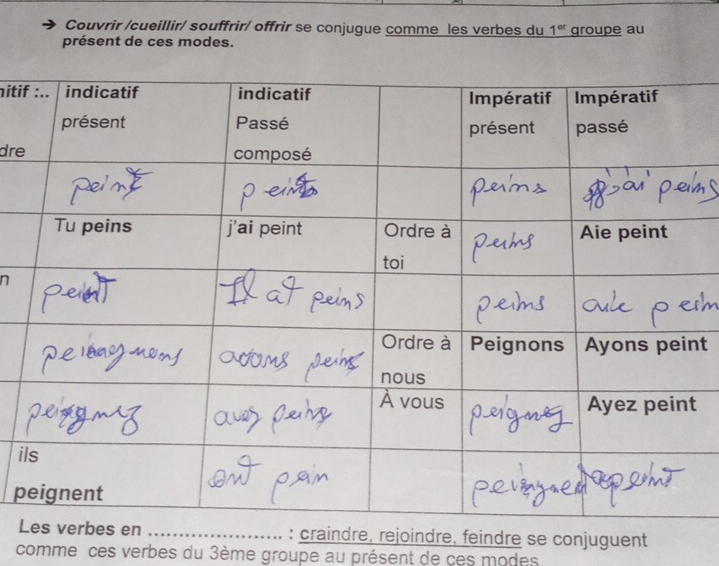 ➔ Couvrir /cueillir/ souffrir/ offrir se conjugue comme les verbes du 1er groupe au
présent de ces modes.
nitif :.. indicatif indicatif Impératif Impératif
présent Passé présent passé
dre composé
peint peint peins j'ai peins
Tu peins j'ai peint Ordre à peins Aie peint
toi
n peint Il at peins peins aie pein
peignons avons peins Ordre à Peignons Ayons peint
nous
peignez avez peins À vous peignez Ayez peint
ils ont pein
peignent
Les verbes en ........................ : craindre, rejoindre, feindre se conjuguent
comme ces verbes du 3ème groupe au présent de ces modes